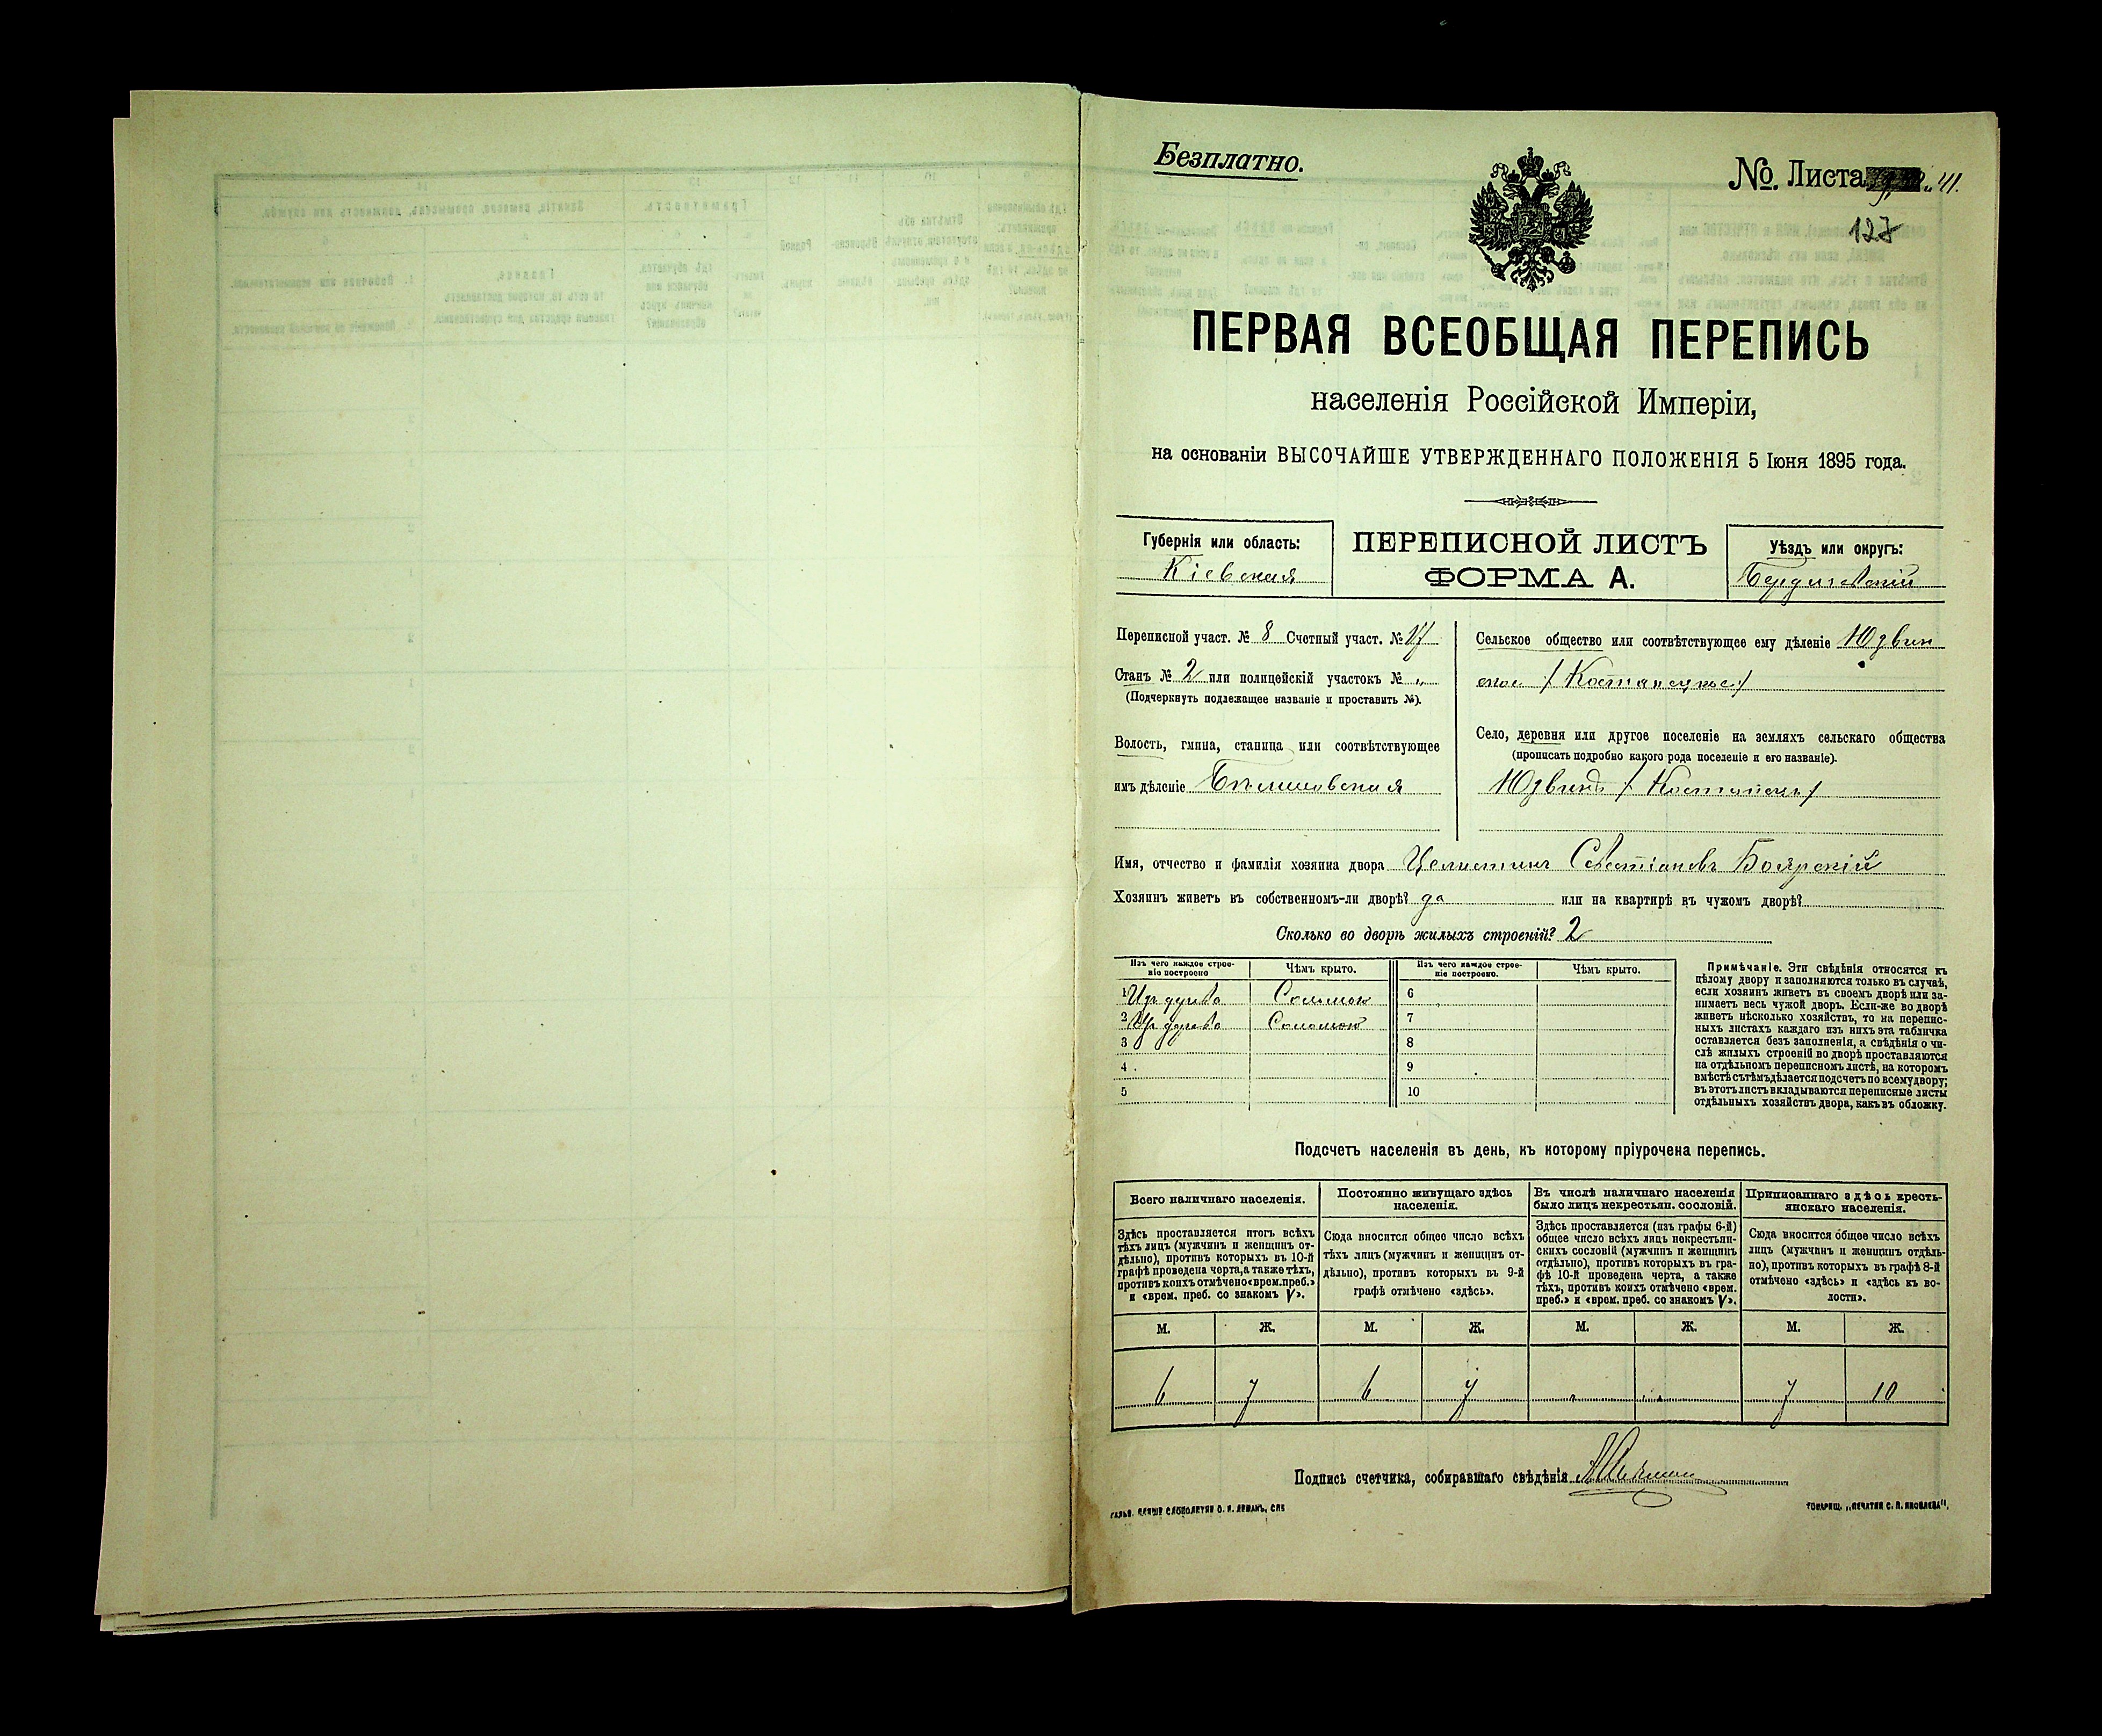 Безплатно.
№. Листа 41.
127
ПЕРВАЯ ВСЕОБЩАЯ ПЕРЕПИСЬ
населенія Россійской Имперіи,
на основаніи ВЫСОЧАЙШЕ УТВЕРЖДЕННАГО ПОЛОЖЕНІЯ 5 Іюня 1895 года.
Губернія или область:
Кіевская
ПЕРЕПИСНОЙ ЛИСТЪ
ФОРМА А.
Уѣздъ или округъ:
Бердичевскій
Переписной участ. № 8 Счетный участ. № 17
Станъ № 2 или полицейскій участокъ № „
(Подчеркнуть подлежащее названіе и проставить №).
Волость, гмина, станица или соотвѣтствующее
имъ дѣленіе
Сельское общество или соотвѣтствующее ему дѣленіе Юзвин
ское /Костянецкое/
Село, деревня или другое поселеніе на земляхъ сельскаго общества
(прописать подробно какого рода поселеніе и его названіе).
Юзвинъ /Костянецъ/
Имя, отчество и фамилія хозяина двора Целистинъ Севастіановъ Боярскій
Хозяинъ живетъ въ собственномъ-ли дворѣ? да или на квартирѣ въ чужомъ дворѣ?
Сколько во дворѣ жилыхъ строеній? 2
Изъ чего каждое строе-
ніе построено
Чѣмъ крыто.
Изъ чего каждое строе-
ніе построено.
Чѣмъ крыто.
1 Изъ дерева Соломою 6
2 Изъ дерева Соломою 7
3 8
4 9
5 10
Примѣчаніе. Эти свѣдѣнія относятся къ
цѣлому двору и заполняются только въ случаѣ,
если хозяинъ живетъ въ своемъ дворѣ или за-
нимаетъ весь чужой дворъ. Если-же во дворѣ
живетъ нѣсколько хозяйствъ, то на перепис-
ныхъ листахъ каждаго изъ нихъ эта табличка
оставляется безъ заполненія, а свѣдѣнія о чи-
слѣ жилыхъ строеній во дворѣ проставляются
на отдѣльномъ переписномъ листѣ, на которомъ
вмѣстѣ съ тѣмъ дѣлается подсчетъ по всему двору;
въ этотъ листъ вкладываются переписные листы
отдѣльныхъ хозяйствъ двора, какъ въ обложку.
Подсчетъ населенія въ день, къ которому пріурочена перепись.
Всего наличнаго населенія.
Здѣсь проставляется итогъ всѣхъ
тѣхъ лицъ (мужчинъ и женщинъ от-
дѣльно), противъ которыхъ въ 10-й
графѣ проведена черта, а также тѣхъ,
противъ коихъ отмѣчено «врем. преб.»
и «врем. преб. со знакомъ V».
Постоянно живущаго здѣсь
населенія.
Сюда вносится общее число всѣхъ
тѣхъ лицъ (мужчинъ и женщинъ от-
дѣльно), противъ которыхъ въ 9-й
графѣ отмѣчено «здѣсь».
Въ числѣ наличнаго населенія
было лицъ некрестьян. сословій.
Здѣсь проставляется (изъ графы 6-й)
общее число всѣхъ лицъ некрестьян-
скихъ сословій (мужчинъ и женщинъ
отдѣльно), противъ которыхъ въ гра-
фѣ 10-й проведена черта, а также
тѣхъ, противъ коихъ отмѣчено «врем.
преб.» и «врем. преб. со знакомъ V».
Приписаннаго здѣсь кресть-
янскаго населенія.
Сюда вносится общее число всѣхъ
лицъ (мужчинъ и женщинъ отдѣль-
но), противъ которыхъ въ графѣ 8-й
отмѣчено «здѣсь» и «здѣсь къ во-
лости».
М. Ж. М. Ж. М. Ж. М. Ж.
6 7 6 7 „ „ 7 10
Подпись счетчика, собиравшаго свѣдѣнія
ТОВАРИЩ. „ПЕЧАТНЯ С. П. ЯКОВЛЕВА".